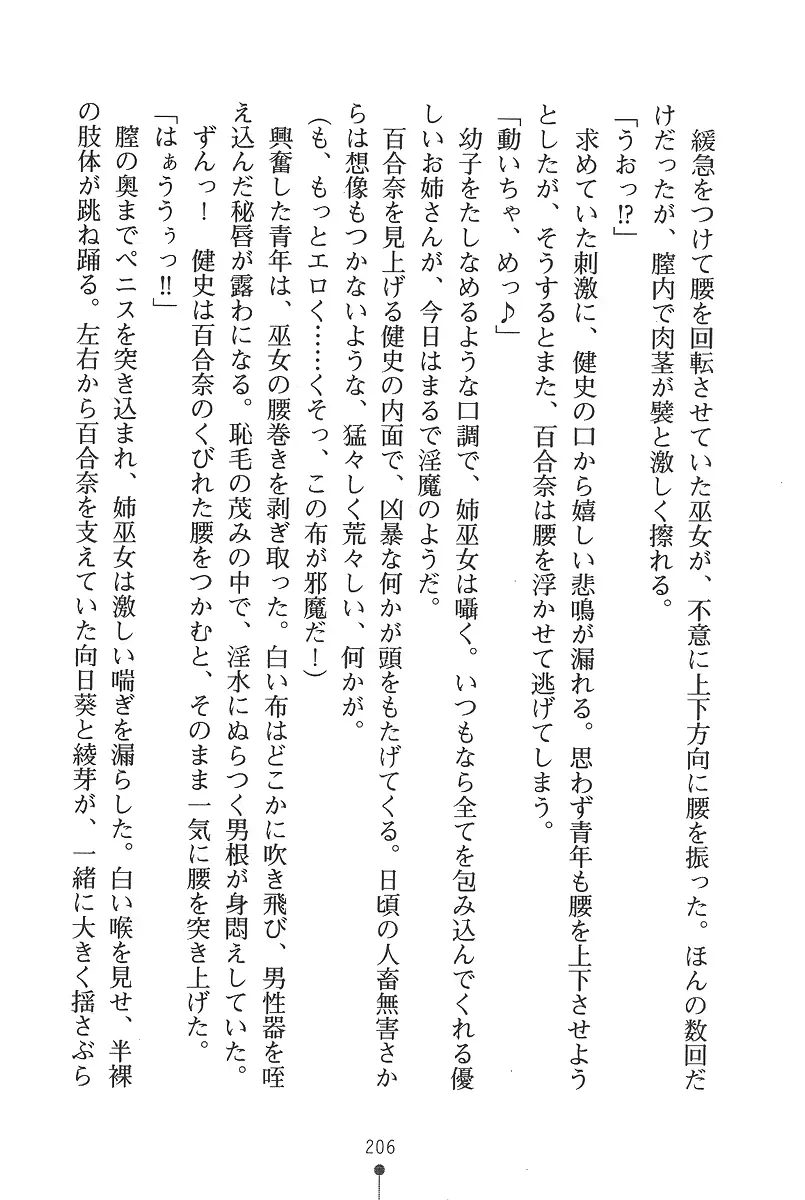 緩急をつけて腰を回転させていた巫女が、不意に上下方向に腰を振った。ほんの数回だ
けだったが、膣内で肉茎が襞と激しく擦れる。
「うおっ!?」
求めていた刺激に、健史の口から嬉しい悲鳴が漏れる。思わず青年も腰を上下させよう
としたが、そうするとまた、百合奈は腰を浮かせて逃げてしまう。
「動いちゃ、めっ♪」
幼子をたしなめるような口調で、姉巫女は囁く。いつもなら全てを包み込んでくれる優
しいお姉さんが、今日はまるで淫魔のようだ。
百合奈を見上げる健史の内面で、凶暴な何かが頭をもたげてくる。日頃の人畜無害さか
らは想像もつかないような、猛々しく荒々しい、何かが。
(も、もっとエロく……くそっ、この布が邪魔だ!)
興奮した青年は、巫女の腰巻きを剥ぎ取った。白い布はどこかに吹き飛び、男性器を咥
え込んだ秘唇が露わになる。恥毛の茂みの中で、淫水にぬらつく男根が身悶えしていた。
ずんっ! 健史は百合奈のくびれた腰をつかむと、そのまま一気に腰を突き上げた。
「はぁううぅっ!!」
膣の奥までペニスを突き込まれ、姉巫女は激しい喘ぎを漏らした。白い喉を見せ、半裸
の肢体が跳ね踊る。左右から百合奈を支えていた向日葵と綾芽が、一緒に大きく揺さぶら
206